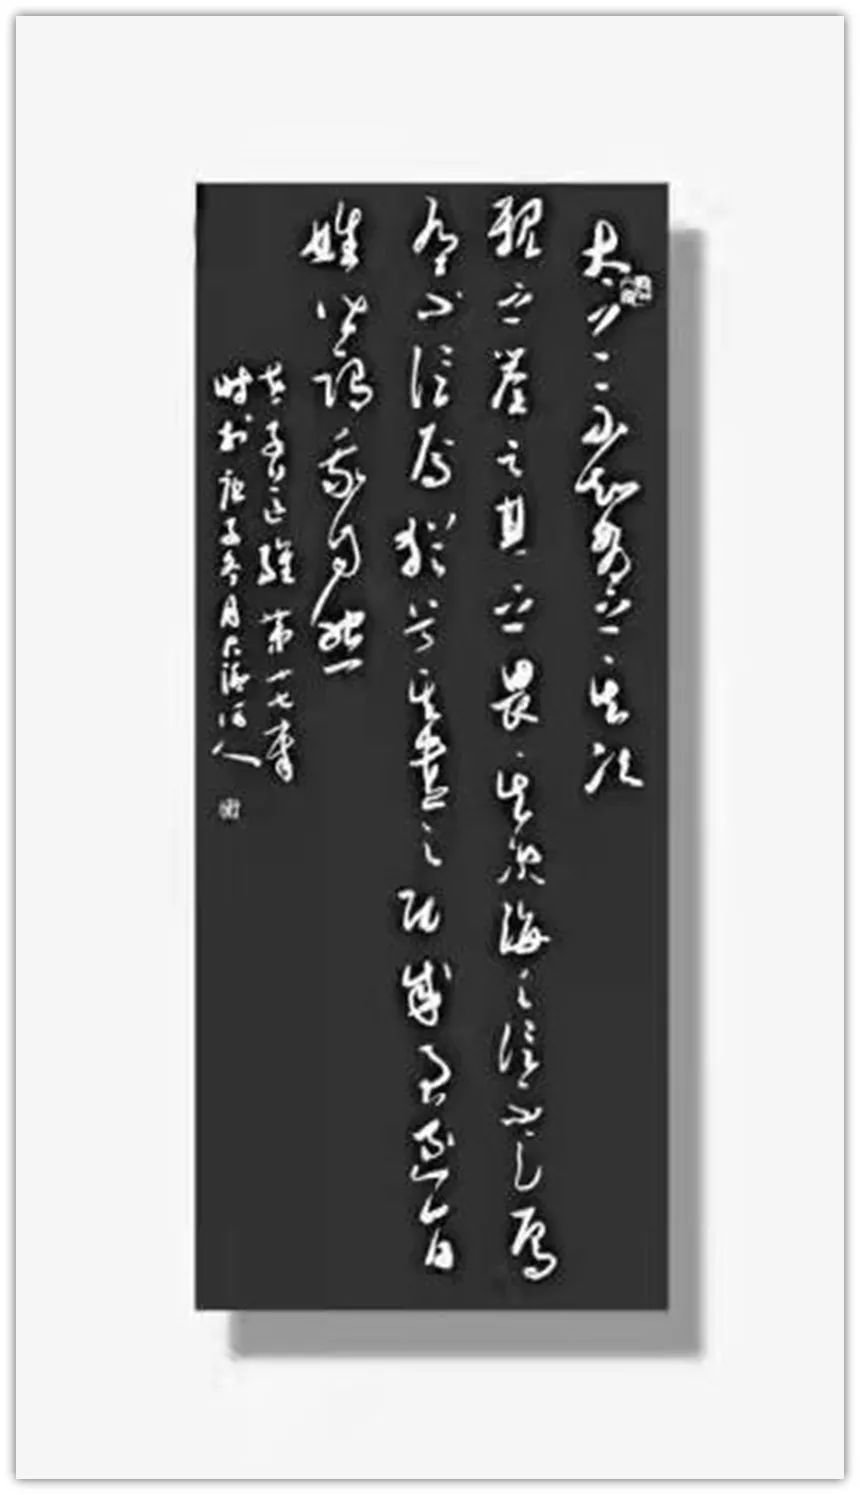 太上不知有之其次
親之譽之其之畏其次侮之信不足焉
有不信焉猶兮其貴言功成事遂百
姓皆謂我自然
老子道經第十七章
時於庚子冬月人